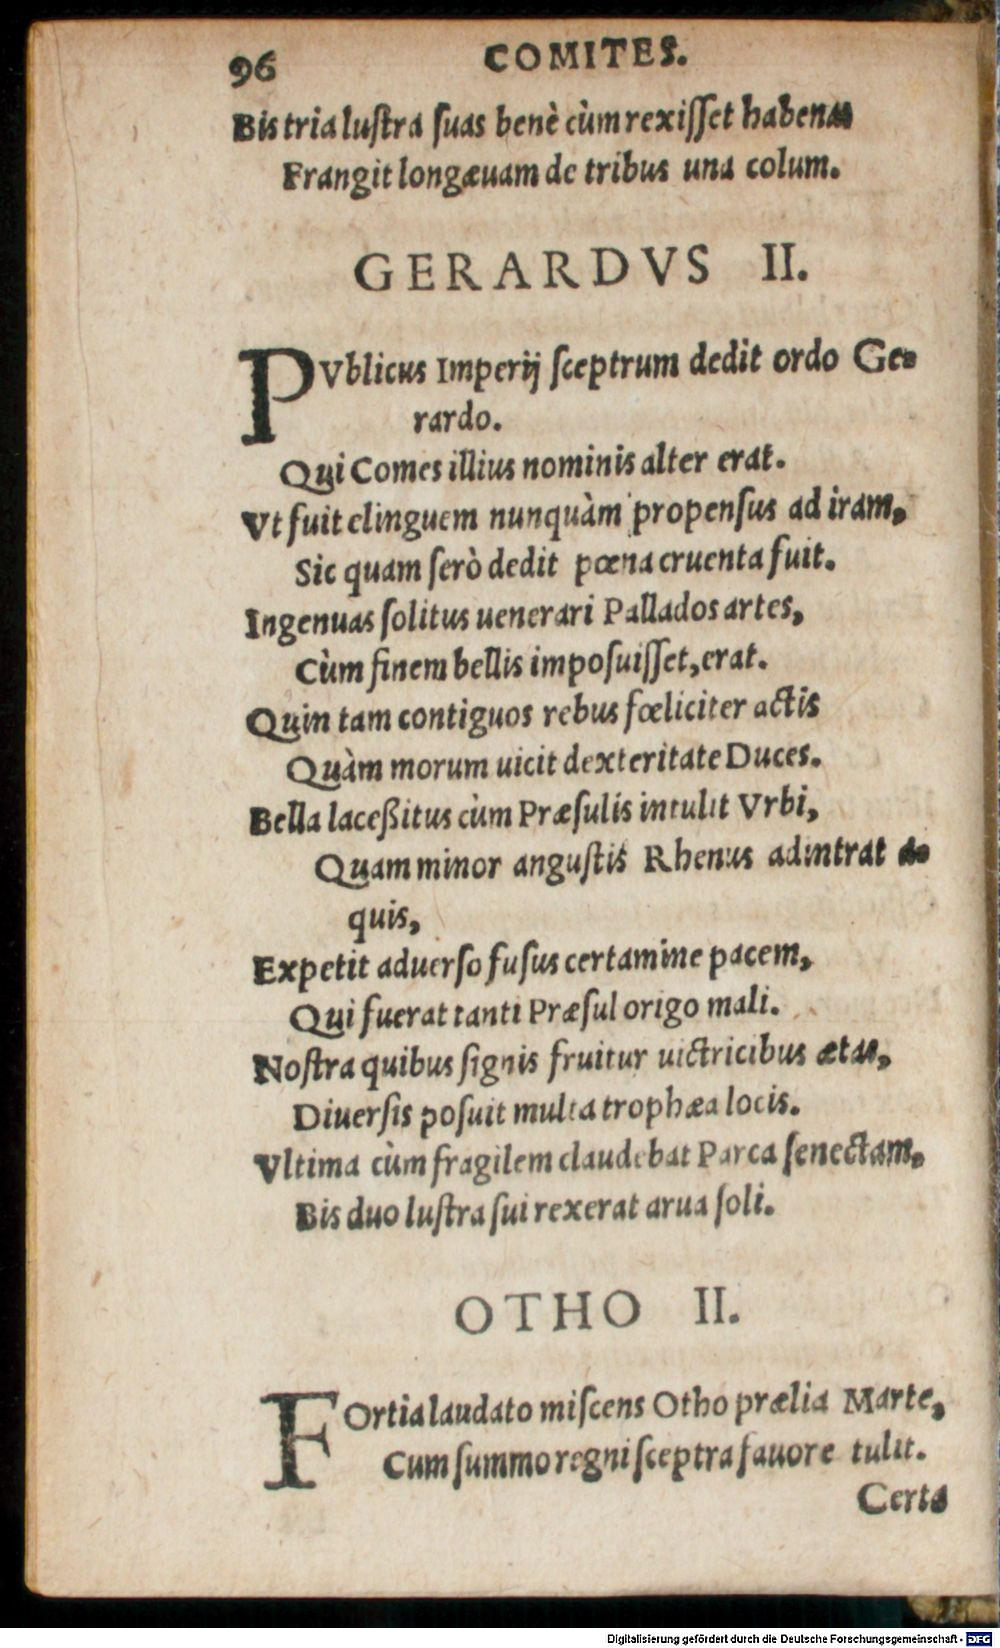 96 COMITES.
Bis tria luſtra ſuas benè cùm rexiſſet habenas
Frangit longæuam de tribus una colum.
GERARDVS II.
PVblicus Imperij ſceptrum dedit ordo Ge-
rardo.
Qui Comes illius nominis alter erat.
Vt fuit elinguem nunquàm propenſus ad iram,
Sic quam ſerò dedit pœna cruenta fuit.
Ingenuas ſolitus uenerari Pallados artes,
Cùm finem bellis impoſuiſſet, erat.
Quin tam contiguos rebus fœliciter actis
Quàm morum uicit dexteritate Duces.
Bella laceßitus cùm Præſulis intulit Vrbi,
Quam minor anguſtis Rhenus adintrat a-
quis,
Expetit aduerſo fuſus certamine pacem,
Qui fuerat tanti Præſul origo mali.
Noſtra quibus ſignis fruitur uictricibus ætas,
Diuerſis poſuit multa trophæa locis.
Vltima cùm fragilem claudebat Parca ſenectam,
Bis duo luſtra ſui rexerat arua ſoli.
OTHO II.
FOrtia laudato miſcens Otho prælia Marte,
Cum ſummo regni ſceptra fauore tulit.
Certa
Digitalisierung gefördert durch die Deutsche Forschungsgemeinschaft - DFG